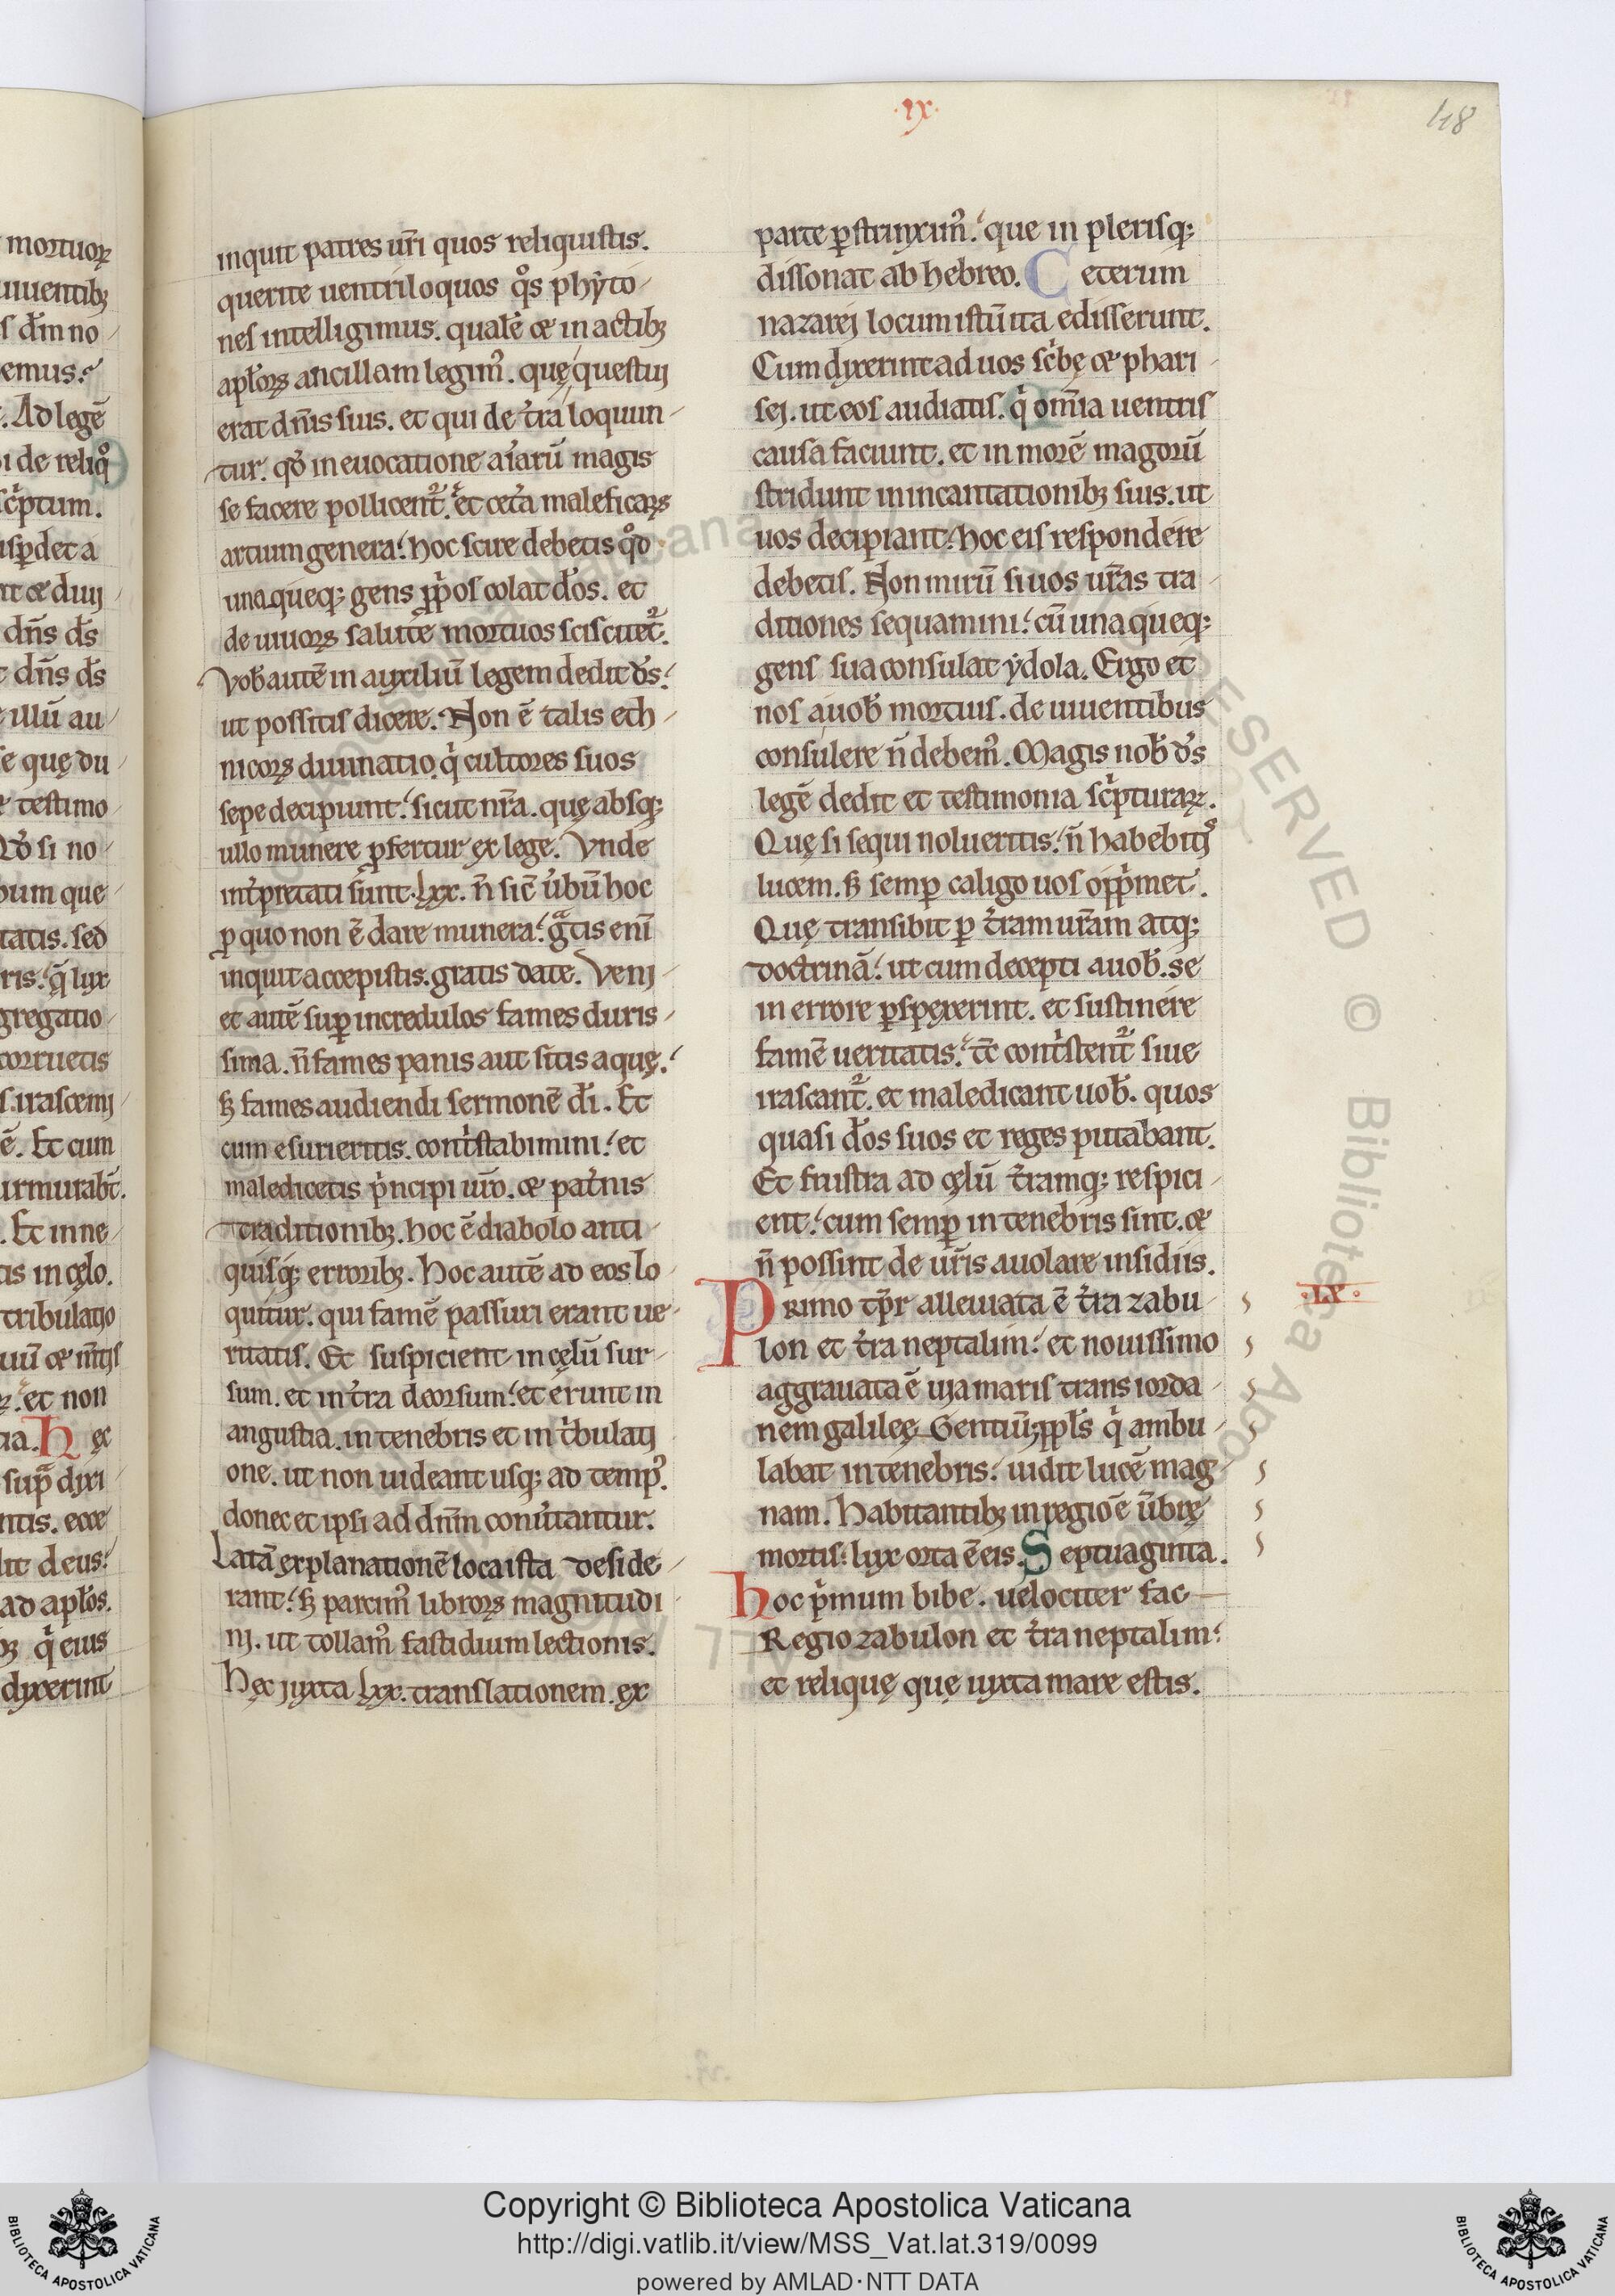 ·ıx·
48
mortuoꝝ
uiuentibꝫ
s dm̄ no
emus.
Ad legē
i de reliqͦ
sc̍ptum.
dn̄s d̄s
t dn̄s d̄s
illū au
e quę du
testimo
Qd̓ si no
bum que
tatis. sed
ris. q̄ lux
gregatio
corruetis
s. irascemj
ē. Et cum
urmurabt̄.
. Et inne
is in cęlo.
tribulatio
et non
ia. Hęc
sup̄ dixi
ntis. ecce
dic deus.
ad apl̄os.
q̍ eius
dixerint
inquit patres ur̄i quos reliquistis.
querite uentriloquos qͦs phẏto
nes intelligimus. qualē ⁊ in actibꝫ
apl̄oꝝ ancillam legim᷒. quę questuj
erat dn̄is suis. et qui de t̄ra loquun
tur. qd̓ in euocatione aīarū magis
se facere pollicent᷑. et cet̓a maleficaꝝ
artium genera. hoc scire debetis qͦd
unaqueqꝫ gens pp̍os colat d̄os. et
de uiuoꝝ salute mortuos sciscitet᷑.
Vob̄ autē in auxiliū legem dedit d̄s.
ut possitis dicere. Non ē talis eth
nicoꝝ diuinatio. q̍ cultores suos
sepe decipiunt. sicut nr̄a. quę absqꝫ
ullo munere ꝑfertur ex lege. Vnde
int̓pretati sunt lxx. n̄ sic̄ u̓bū hoc
ꝓ quo non ē dare munera. gͣtis enī
inquit accepistis. gratis date. Venj
et autē suꝑ incredulos fames duris
sima. n̄ fames panis aut sitis aquę.
sꝫ fames audiendi sermonē d̄i. Et
cum esurieritis. cont̍stabimini. et
maledicetis p̍ncipi ur̄o. ⁊ pat̓nis
traditionibꝫ. hoc ē diabolo anti
quisqꝫ erroribꝫ. Hoc autē ad eos lo
quitur. qui famē passuri erant ue
ritatis. Et suspicient in cęlū sur
sum. et in t̓ra deorsum. et erunt in
angustia. in tenebris et in t̍bulatj
one. ut non uideant usqꝫ ad temp᷒.
donec et ipsi ad dn̄m conu̓tantur.
Latā explanationē loca ista deside
rant. sꝫ parcim᷒ libroꝝ magnitudi
nj. ut tollam᷒ fastidium lectionis.
Hęc juxta lxx. translationem. ex
parte ꝑstrinxim᷒. que in plerisqꝫ
dissonat ab hebreo. Ceterum
nazarej locum istū ita edisserunt.
Cum dixerint ad uos sc̍bę ⁊ phari
sej. ut eos audiatis. q̍ omīa uentris
causa faciunt. et in morē magorū
stridunt in incantationibꝫ suis. ut
uos decipiant. hoc eis respondere
debetis. Non mirū si uos ur̄as tra
ditiones sequamini. cū unaqueqꝫ
gens sua consulat ẏdola. Ergo et
nos a uob̄ mortuis. de uiuentibus
consulere n̄ debem᷒. Magis nob̄ d̄s
legē dedit et testimonia sc̍pturaꝝ.
Quę si sequi nolueritis. n̄ habebitis
lucem. sꝫ semꝑ caligo uos opp̍met.
Quę transibit ꝑ t̓ram ur̄am atqꝫ
doctrinā. ut cum decepti a uob̄. se
in errore ꝑspexerint. et sustinere
famē ueritatis. tc̄ cont̍stent᷑ siue
irascant᷑. et maledicant uob̄. quos
quasi d̄os suos et reges putabant.
Et frustra ad cęlū t̓ramqꝫ respici
ent. cum semꝑ in tenebris sint. ⁊
n̄ possint de ur̄is auolare insidiis.
Primo tp̄r alleuiata ē t̓ra zabu
lon et t̓ra neptalim. et nouissimo
aggrauata ē uja maris trans iorda
nem galileę Gentiū. ppl̄s q̍ ambu
labat in tenebris. uidit lucē mag
nam. Habitantibꝫ in regiōe u̓brę
mortis. lux orta ē eis. Septuaginta.
Hoc p̍mum bibe. uelociter fac
Regio zabulon et t̓ra neptalim.
et reliquę quę iuxta mare estis.
·LX·
Copyright © Biblioteca Apostolica Vaticana
http://digi.vatlib.it/view/MSS_Vat.lat.319/0099
powered by AMLAD·NTT DATA
BIBLIOTECA APOSTOLICA VATICANA
BIBLIOTECA APOSTOLICA VATICANA